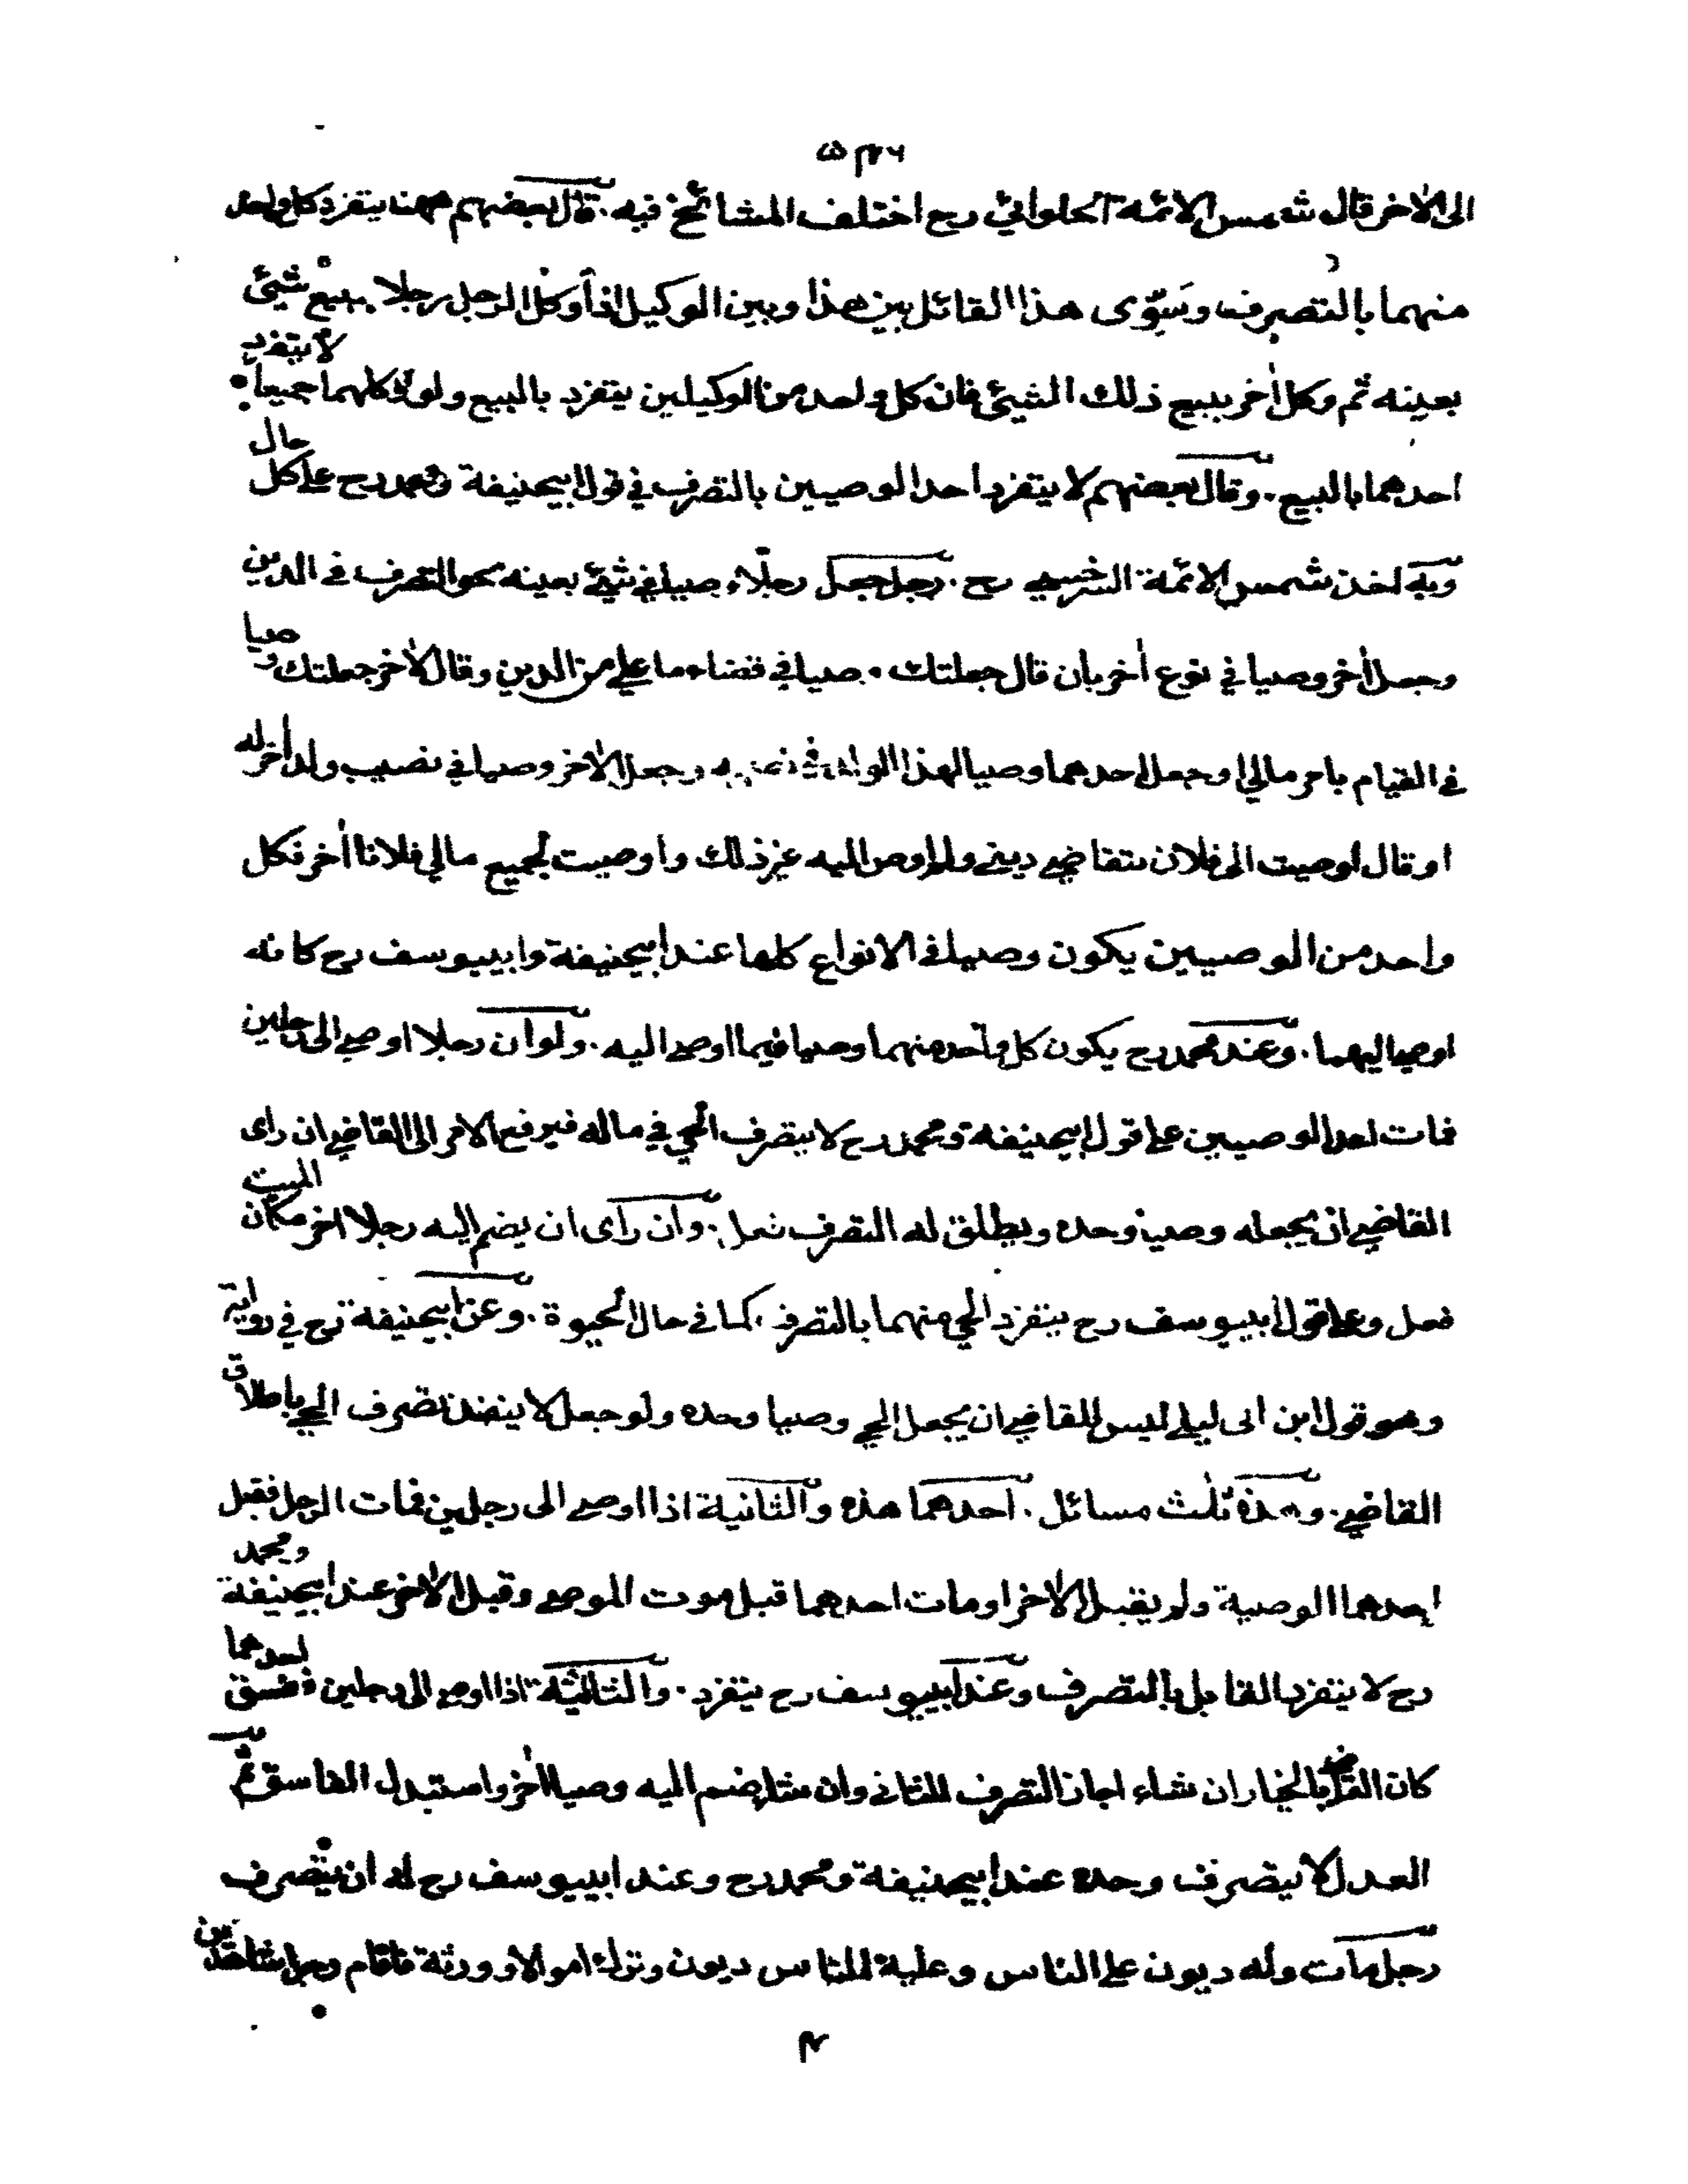 الى الاخر قال شمس الائمة الحلوانى رح اختلف المشائخ فيه. قال بعضهم ههنا يتفرد كل واحد
منهما بالتصرف وسَوّى هذا القائل بين هذا وبين الوكيل اذا وكل الرجل رجلا ببيع شيئ
بعينه ثم وكل أخر ببيع ذلك الشيئ فان كل واحد من الوكيلين يتفرد بالبيع ولو وكلهما جميعا لا يتفرد
احدهما بالبيع. وقال بعضهم لا يتفرد احد الوصيين بالتصرف في قول ابيحنيفة ومحمد رح على كل حال
وبه اخذ شمس الائمة السرخسي رح. رجل جعل رجلا وصيا في شيئ بعينه نحو التصرف في الدين
وجعل أخر وصيا في نوع أخر بان قال جعلتك وصيا في قضاء ما علي من الدين وقال لاخر جعلتك وصيا
في القيام بامر مالي او جعل احدهما وصيا لهذا الولد في نصيبه وجعل الاخر وصيا في نصيب ولد أخر له
او قال اوصيت الى فلان بتقاضي ديني ولم اوص اليه غير ذلك واوصيت لجميع مالي فلانا أخر فكل
واحد من الوصيين يكون وصيا في الانواع كلها عند ابيحنيفة وابييوسف رح كانه
اوصى اليهما. وعند محمد رح يكون كل واحد منهما وصيا فيما اوصى اليه. ولو ان رجلا اوصى الى رجلين
فمات احد الوصيين على قول ابيحنيفة ومحمد رح لا يتصرف الحي في ماله فيرفع الامر الى القاضي ان راى
القاضي ان يجعله وصيا وحده ويطلق له التصرف فعل. وان راى ان يضم اليه رجلا اخر مكان الميت
فعل وعلى قول ابييوسف رح يتفرد الحي منهما بالتصرف كما في حال الحيوة. وعن ابيحنيفة رح في رواية
وهو قول ابن ابى ليلى ليس للقاضي ان يجعل الحي وصيا وحده ولو جعل لا ينفذ تصرف الحي باطلاق
القاضي. وهذه ثلث مسائل. احدهما هذه والثانية اذا اوصى الى رجلين فمات الرجل فقبل
احدهما الوصية ولم يقبل الاخر او مات احدهما قبل موت الموصى وقبل الاخر عند ابيحنيفة ومحمد
رح لا يتفرد القابل بالتصرف وعند ابييوسف رح يتفرد. والثالثة اذا اوصى الى رجلين ففسق احدهما
كان القاضي بالخيار ان شاء اجاز التصرف للثاني وان شاء ضم اليه وصيا اخر واستبدل الفاسق ثم
العدل لا يتصرف وحده عند ابيحنيفة ومحمد رح وعند ابييوسف رح له ان يتصرف
رجل مات وله ديون على الناس وعليه للناس ديون وترك اموالا وورثة فاقام رجل شاهدين